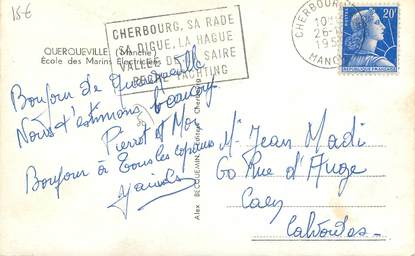 15€
QUERQUEVILLE (Manche)
École des Marins Électriciens
CHERBOURG, SA RADE
SA DIGUE, LA HAGUE
VALLÉE DE LA SAIRE
RADE YACHTING
CHERBOURG
26-
195
MANCHE
20F
Bonjour de Querqueville
Nous t'estimons beaucoup
Pierrot et Moi
Bonjour à tous les copains
Alex BECQUEMIN, Éditeur Cherbourg
Mr Jean Madi
60 Rue d'Auge
Caen
Calvados